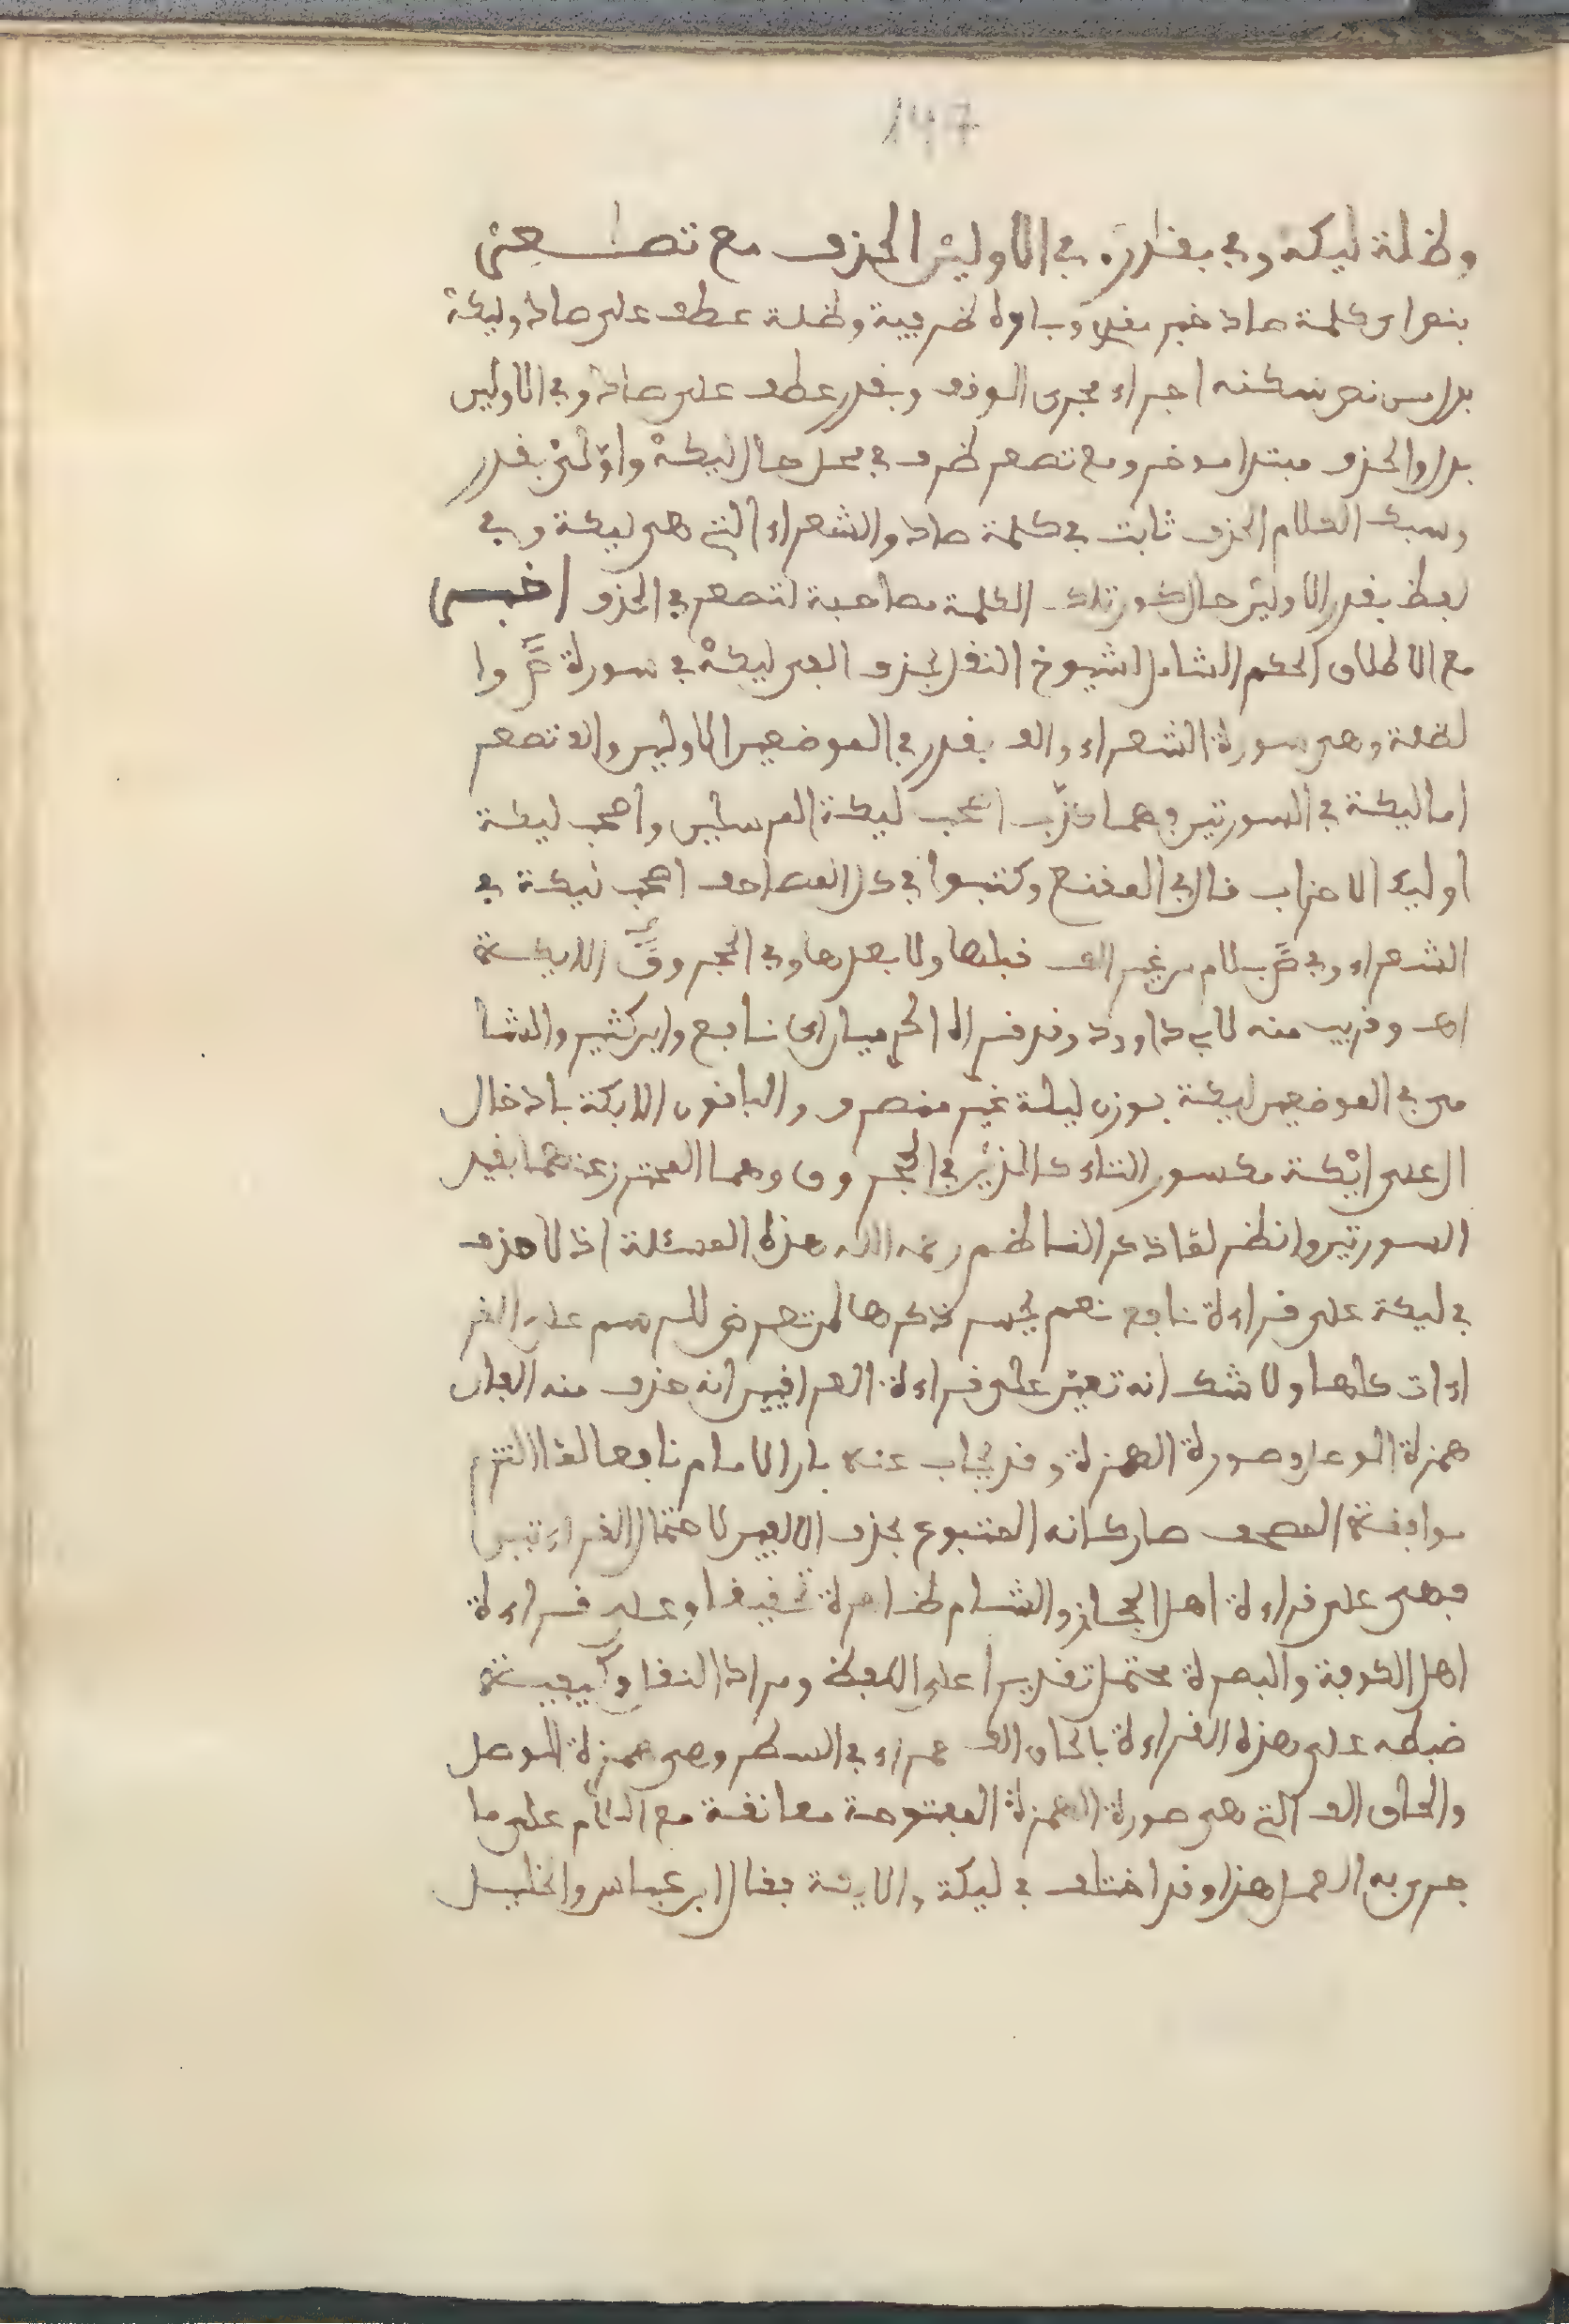 147
وظلة ليكه وفي بقدر في الاولين الحذف مع تصعر
بنحو اي كلمة صاد خبر مقدم وباوه ظرفية وظلة عطف على صاد وليكة
بدل من نحو سكنه اجراء مجرى الوقف وبقدر عطف على صاد وفي الاولين
بدل والحذف مبتدا موخر ومع تصعر ظرف في محل حال ليكة واولى بقدر
وسبك الكلام الحذف ثابت في كلمة صاد والشعراء التي هي ليكة وفي
لفظ بقدر الاولين حال كون تلك الكلمة مصاحبة لتصعر في الحذف اخبر
مع الاطلاق الحكم الشامل لشيوخ النقل بحذف الفي ليكة في سورة ص وا
لظلة وهي سورة الشعراء والف بقدر في الموضعين الاولين والف تصعر
اما ليكة في السورتين فهما كذب اصحب ليكة المرسلين واصحب ليكة
اوليك الاحزاب قال في المقنع وكتبوا في كل المصاحف اصحب ليكة في
الشعراء وفي ص بلام من غير الف قبلها ولا بعدها وفي الحجر وق الايكة
اهـ وقريب منه لابي داوود وقد قرا الحرميان اي نافع وابن كثير والشا
مي في الموضعين ليكة بوزن ليلة غير منصرف والباقون الايكة بادخال
ال على ايكة مكسور التاء كالذين في الحجر وق وهما المحترز عنهما بقيد
السورتين وانظر لما ذكر الناظم رحمه الله هذه المسئلة اذ لا حذف
في ليكة على قراءة نافع نعم يحسن ذكرها لمن تعرض للرسم على القر
اءات كلها ولا شك انه تعين على قراءة العراقيين انه حذف منه الفان
همزة الوصل وصورة الهمزة وقد يجاب عنه بان الامام نافعا لما التزم
موافقة المصحف صار كانه المتبوع بحذف الالفين لاحتمال القراءتين
فهي على قراءة اهل الحجاز والشام ظاهرة تحقيقا وعلى قراءة
اهل الكوفة والبصرة محتمل تقديرا على اللفظ ومراد النفاوكيفية
ضبطه على هذه القراءة بالحاق الف حمراء في السطر وهي همزة الوصل
والحاق الف التي هي صورة الهمزة المفتوحة معانقة مع اللام على ما
جرى به العمل هذا وقد اختلف في ليكة والايكة فقال ابن عباس والخليل